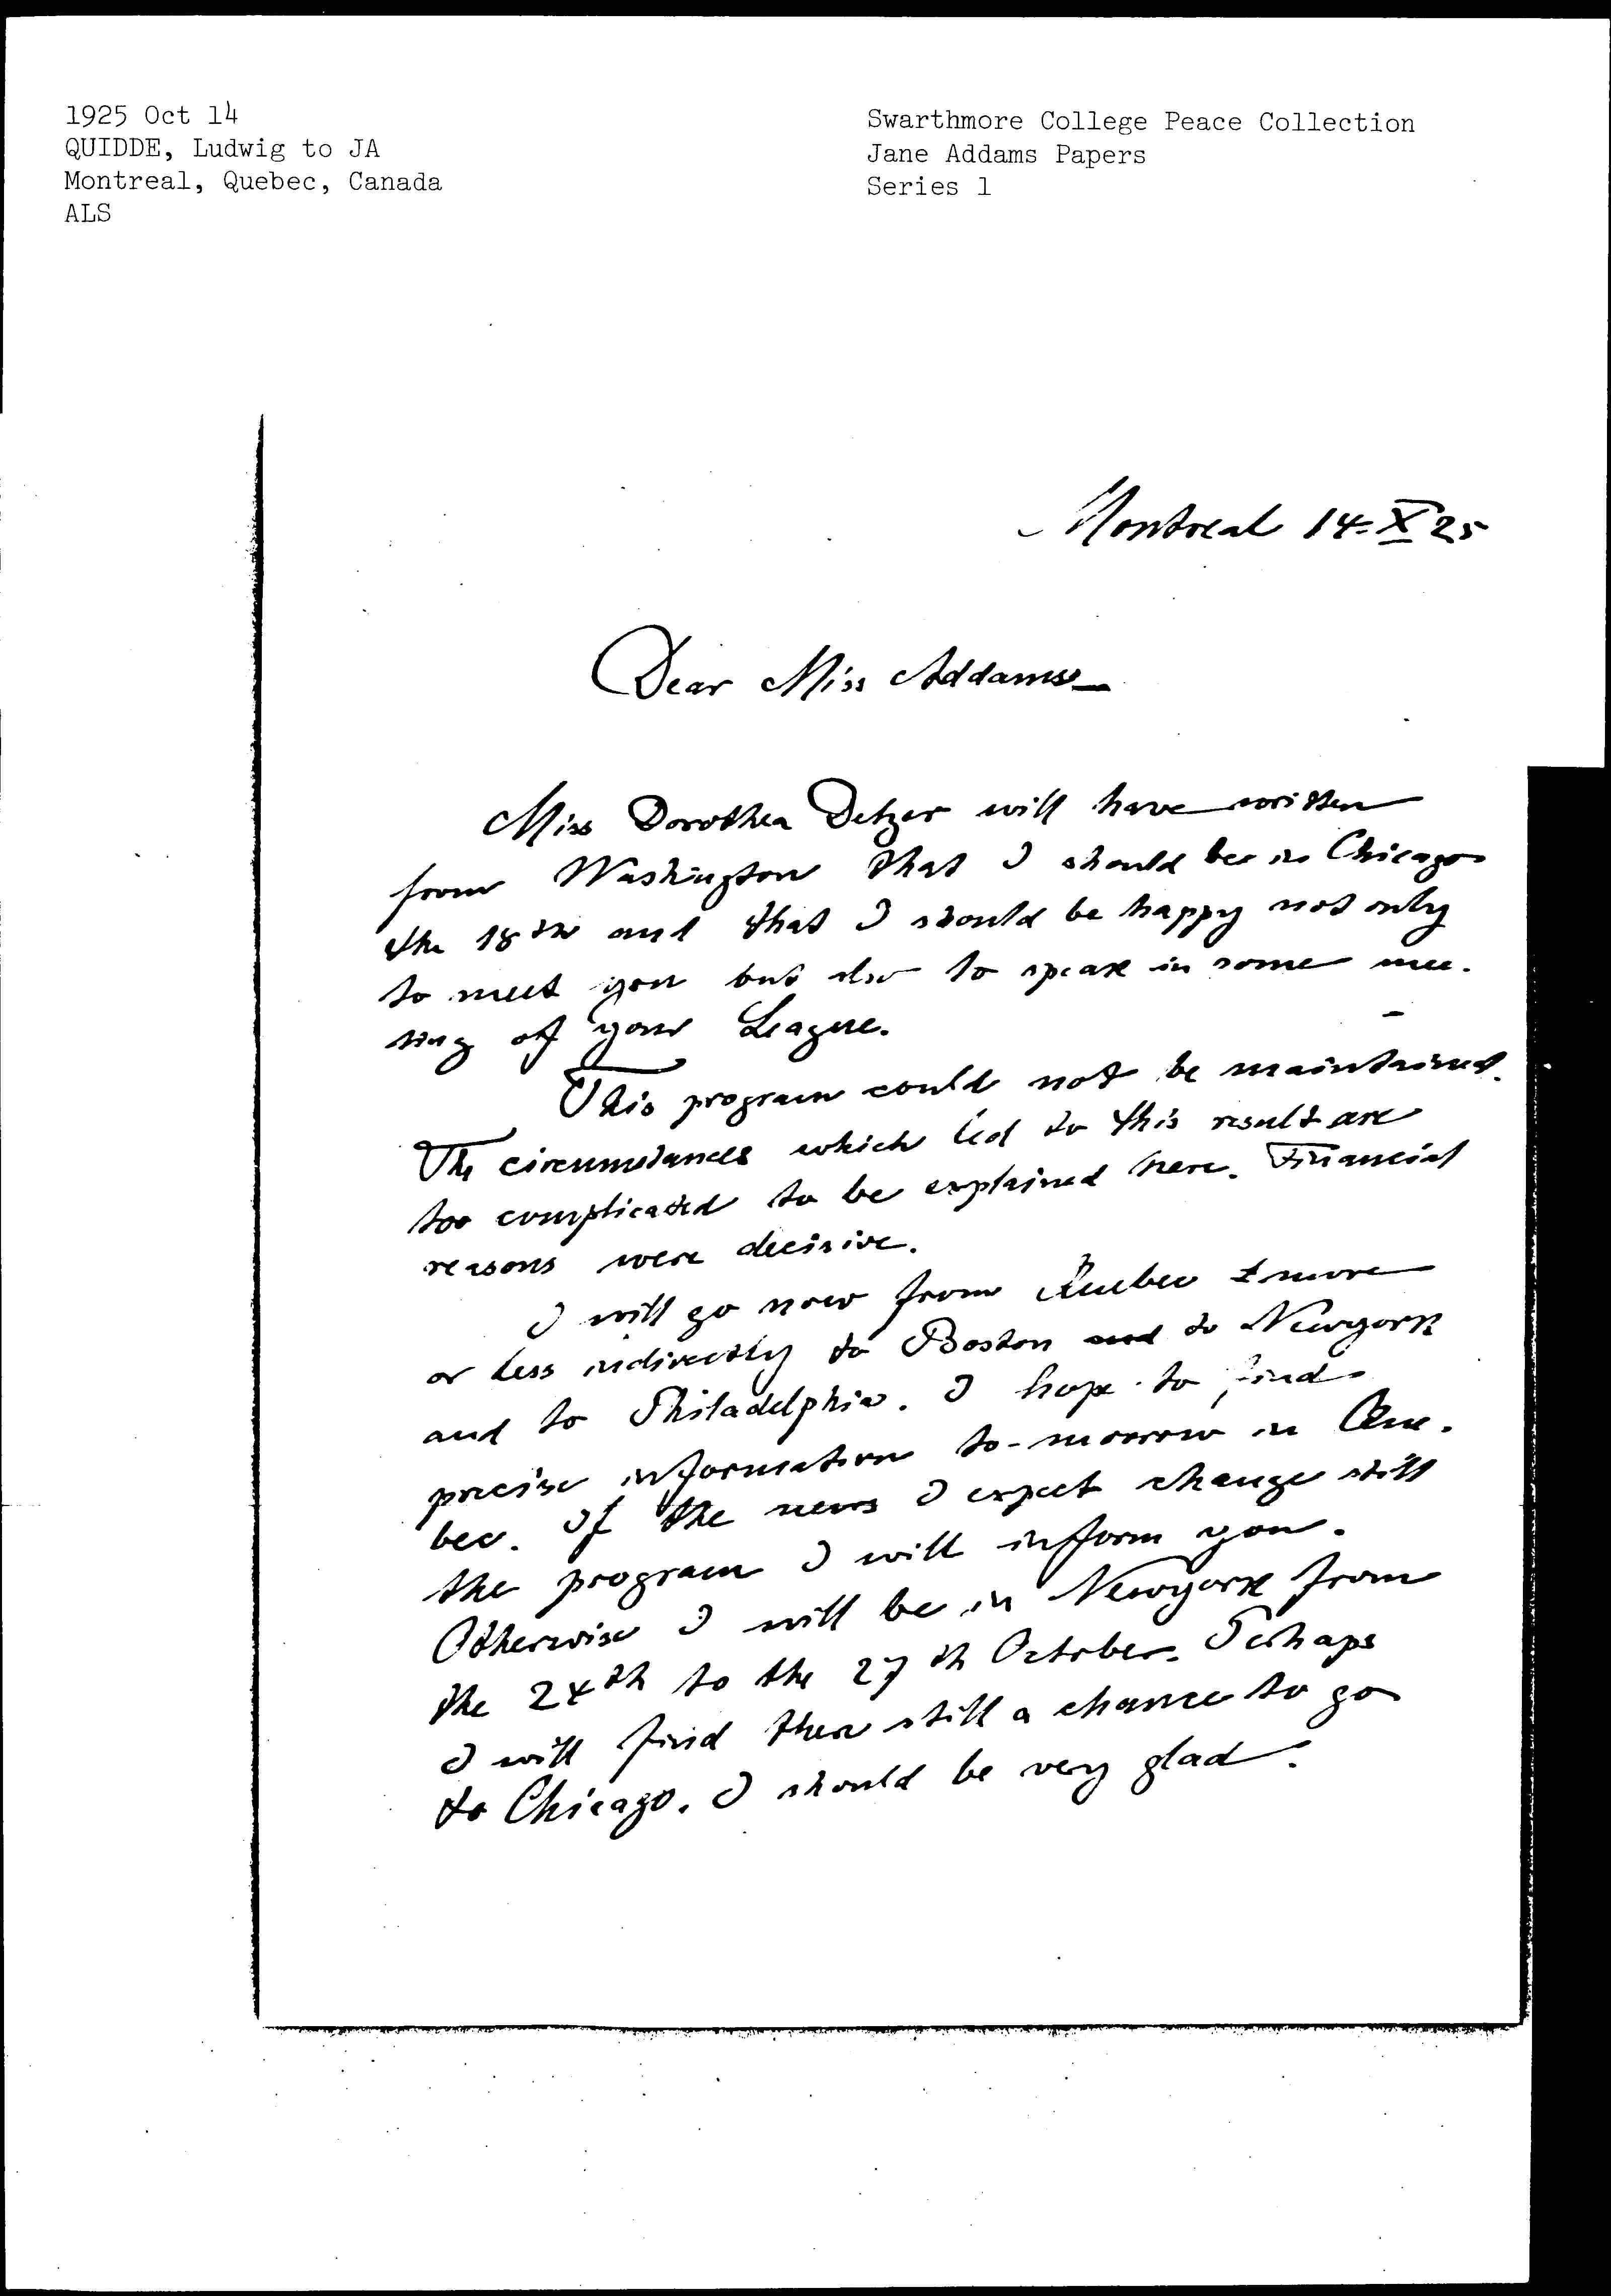 1925 Oct 14
QUIDDE, Ludwig to JA
Montreal, Quebec, Canada
ALS
Swarthmore College Peace Collection
Jane Addams Papers
Series 1
Montreal 14.X 25
Dear Miss Addams
Miss Dorothea Detzer will have written
from Washington that I should be in Chicago
the 18th and that I should be happy not only
to meet you but also to speak in some mee-
ting of your League.
This program could not be maintained.
The circumstances which led to this result are
too complicated to be explained here. Financial
reasons were decisive.
I will go now from Quebec more
or less indirectly to Boston to Newyork
and to Philadelphia. I hope to find
precise information to-morrow in Que-
bec. If the news I expect change still
the program I will inform you.
Otherwise I will be in Newyork from
the 24th to the 27th October. Perhaps
I will find then still a chance to go
to Chicago. I should be very glad.